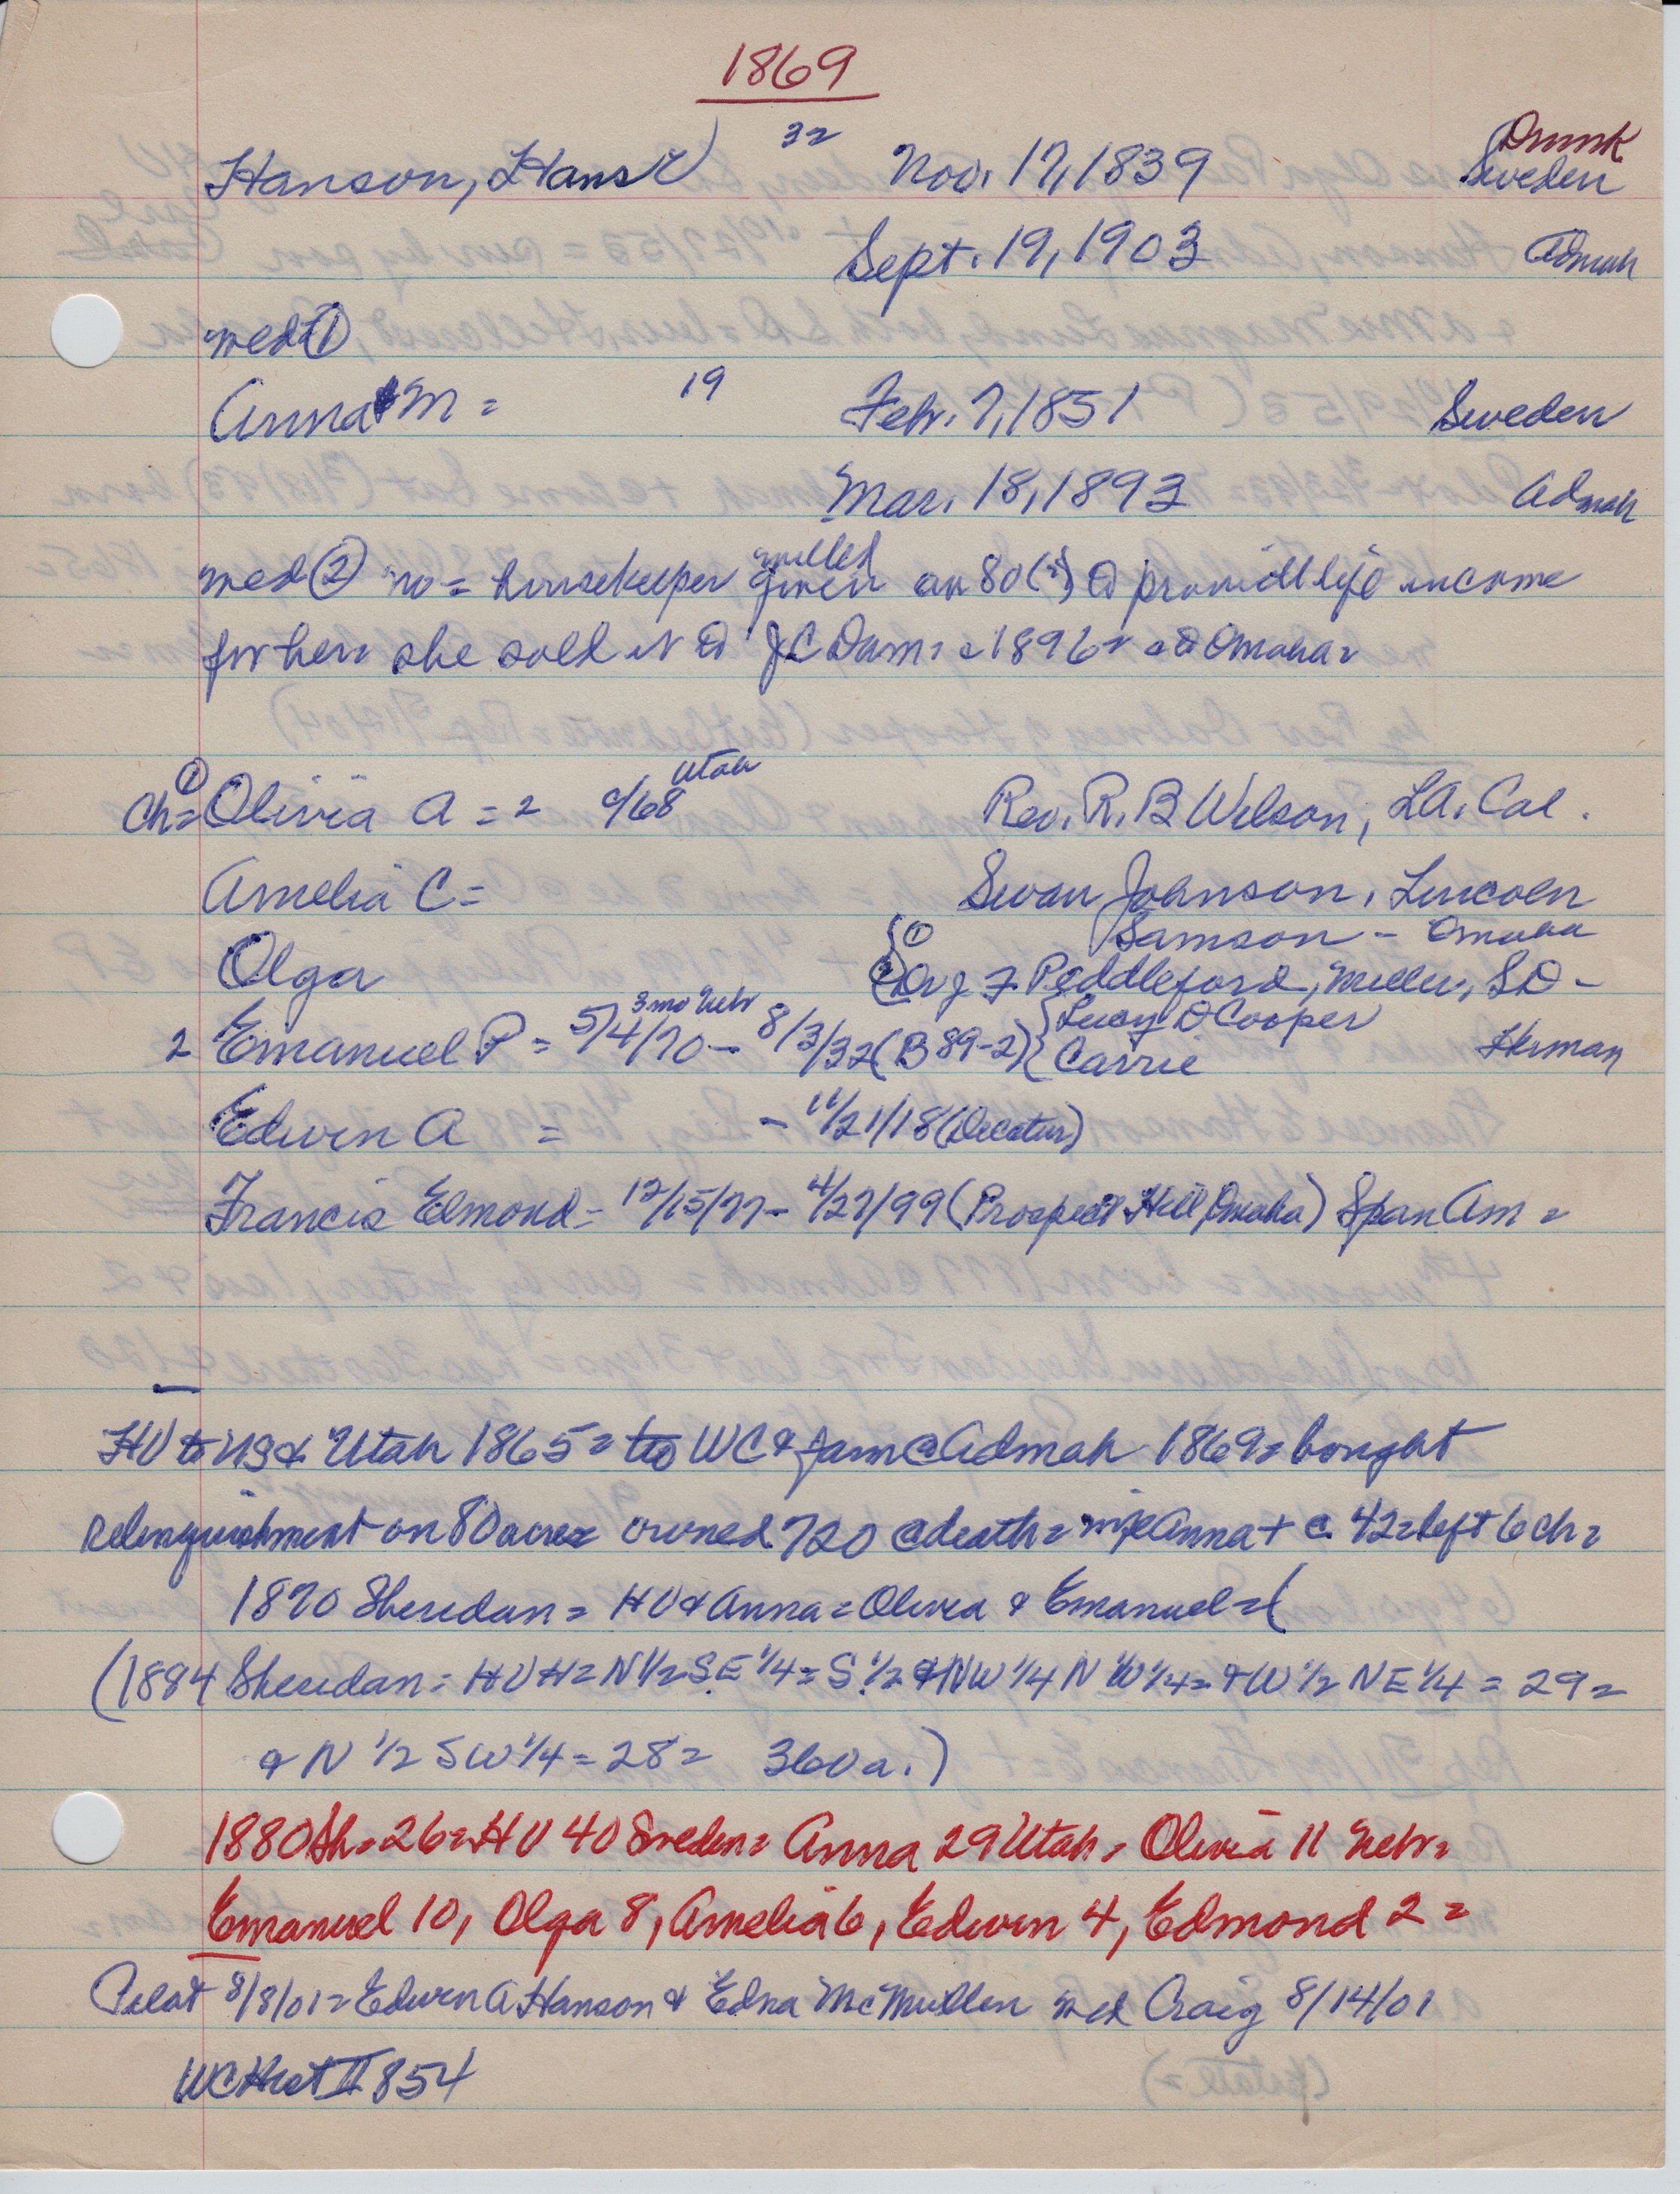 1869
Hanson, Hans V 32 Nov. 17, 1839 Sweden
Sept. 19, 1903 Admah
med ①
Anna M = 19 Feb. 7, 1851 Sweden
Mar. 18, 1893 Admah
willed
med ② no = housekeeper given an 80 (?) life income
for her = she sold it J C Dam = c 1896 = Omaha =
①
Utah
Ch = Olivia A = 2 c/68 Rev. R. B Wilson, LA. Cal.
Amelia C = Swan Johnson, Lincoln
① Samson - Omaha
Olga ② F Peddleford, Miller, SD -
3 mo Nebr
2 Emanuel P = 5/4/70 - 8/3/32 (B 89-2) { Lucy D Cooper
Carrie Herman
Edwin A = - 11/21/18 (Decatur)
Francis Elmond - 12/15/77 - 4/27/99 (Prospect Hill, Omaha) Span Am =
HV to US & Utah 1865 = to WC & farm @ Admah 1869 = bought
relinquishment on 80 acres owned 720 @ death = wife Anna + c. 42 = left 6 ch =
1870 Sheridan = HV & Anna = Olivia & Emanuel = (
(1884 Sheridan = HVH = N 1/2 SE 1/4 = S 1/2 & NW 1/4 NW 1/4 = & W 1/2 NE 1/4 = 29 =
& N 1/2 SW 1/4 = 28 = 360 a.)
1880 Sh = 26 = HV 40 Sweden = Anna 29 Utah = Olivia 11 Nebr =
Emanuel 10, Olga 8, Amelia 6, Edwin 4, Edmond 2 =
Pilot 8/8/01 = Edwin A Hanson & Edna McMullen med Craig 8/14/01
WC Hist II 854